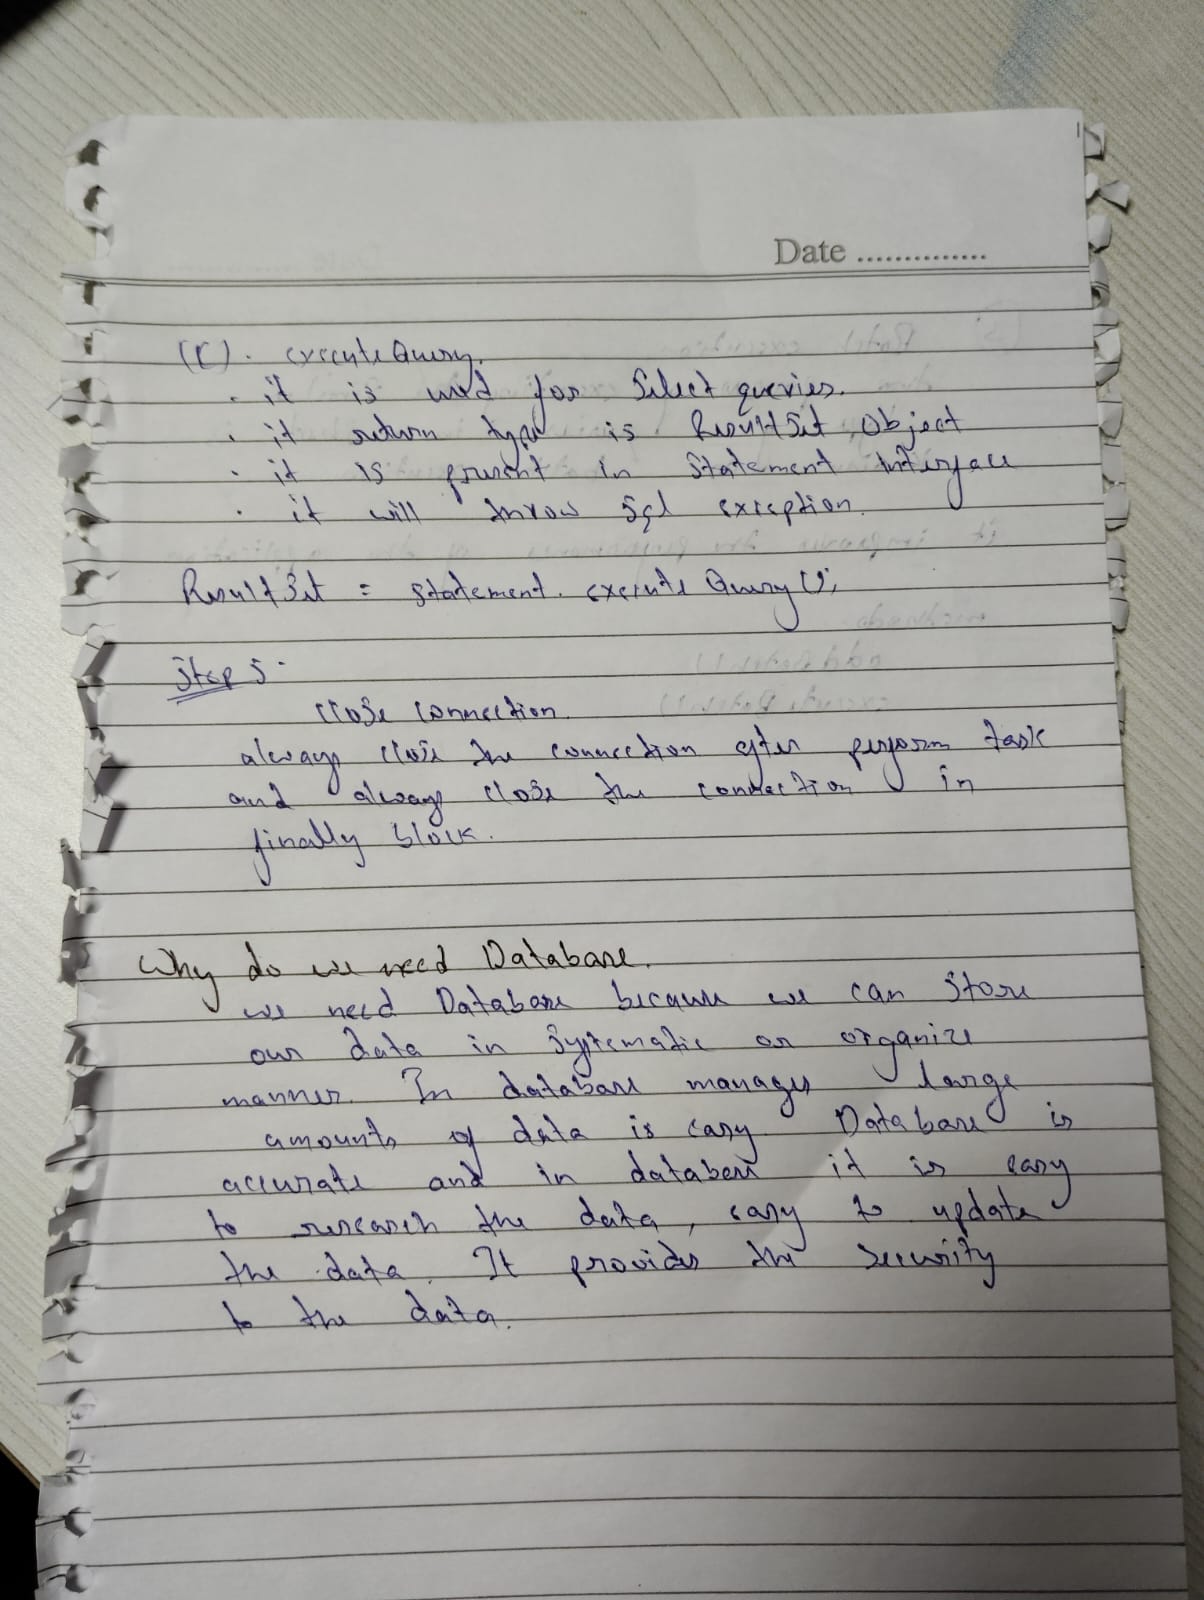 Date ..............
(C). executeQuery.
. it is used for Select queries.
. it return type is ResultSet Object
. it is present in Statement Interface
. it will throw Sql exception.
ResultSet = statement. execute Query ();
Step 5.
Close Connection.
always close the connection after perform task
and always close the connection in
finally block.
Why do we need Database.
we need Database because we can store
our data in Systematic or organize
manner. In database manages large
amounts of data is easy Database is
accurate and in databese it is easy
to research the data, easy to update
the data. It provides the Security
to the data.